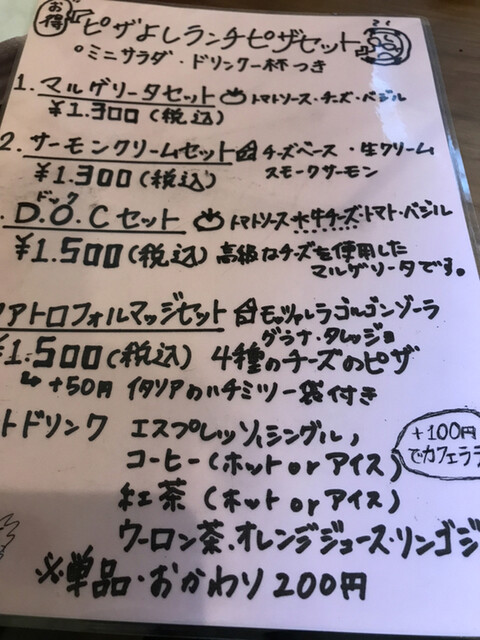 お得
『ピザよしランチピザセット』
○ミニサラダ・ドリンク一杯つき
1. マルゲリータセット トマトソース・チーズ・バジル
¥1.300(税込)
2. サーモンクリームセット チーズベース・生クリーム
¥1.300(税込) スモークサーモン
. D.O.Cセット トマトソース水牛チーズ・トマト・バジル
ドック
¥1.500(税込) 高級なチーズを使用した
マルゲリータです。
アトロフォルマッジセット モッツァレラゴルゴンゾーラ
グラナ・タレッジョ
¥1.500(税込) 4種のチーズのピザ
+50円 イタリアのハチミツ一袋付き
トドリンク エスプレッソ(シングル)
コーヒー(ホット or アイス)
+100円
でカフェラテ
紅茶(ホット or アイス)
ウーロン茶.オレンジジュース・リンゴジ
※単品・おかわり200円